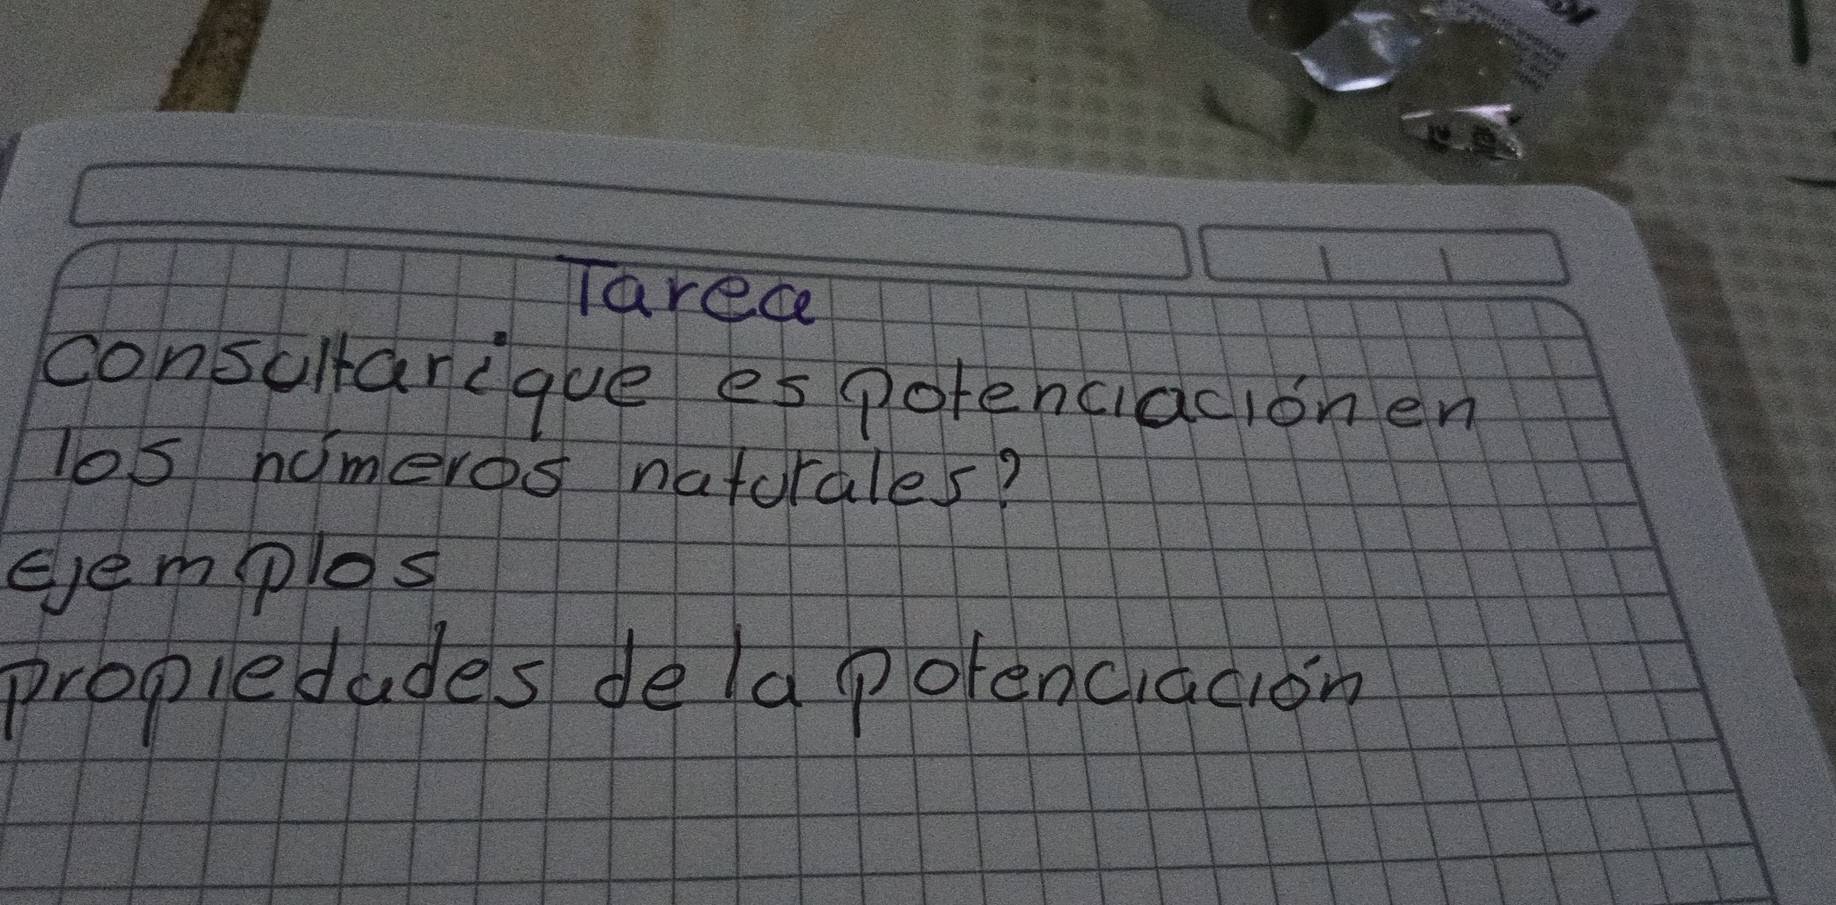 Tarea
consultar ¿que es potenciación en
los números naturales?
ejemplos
propiedades de la potenciación